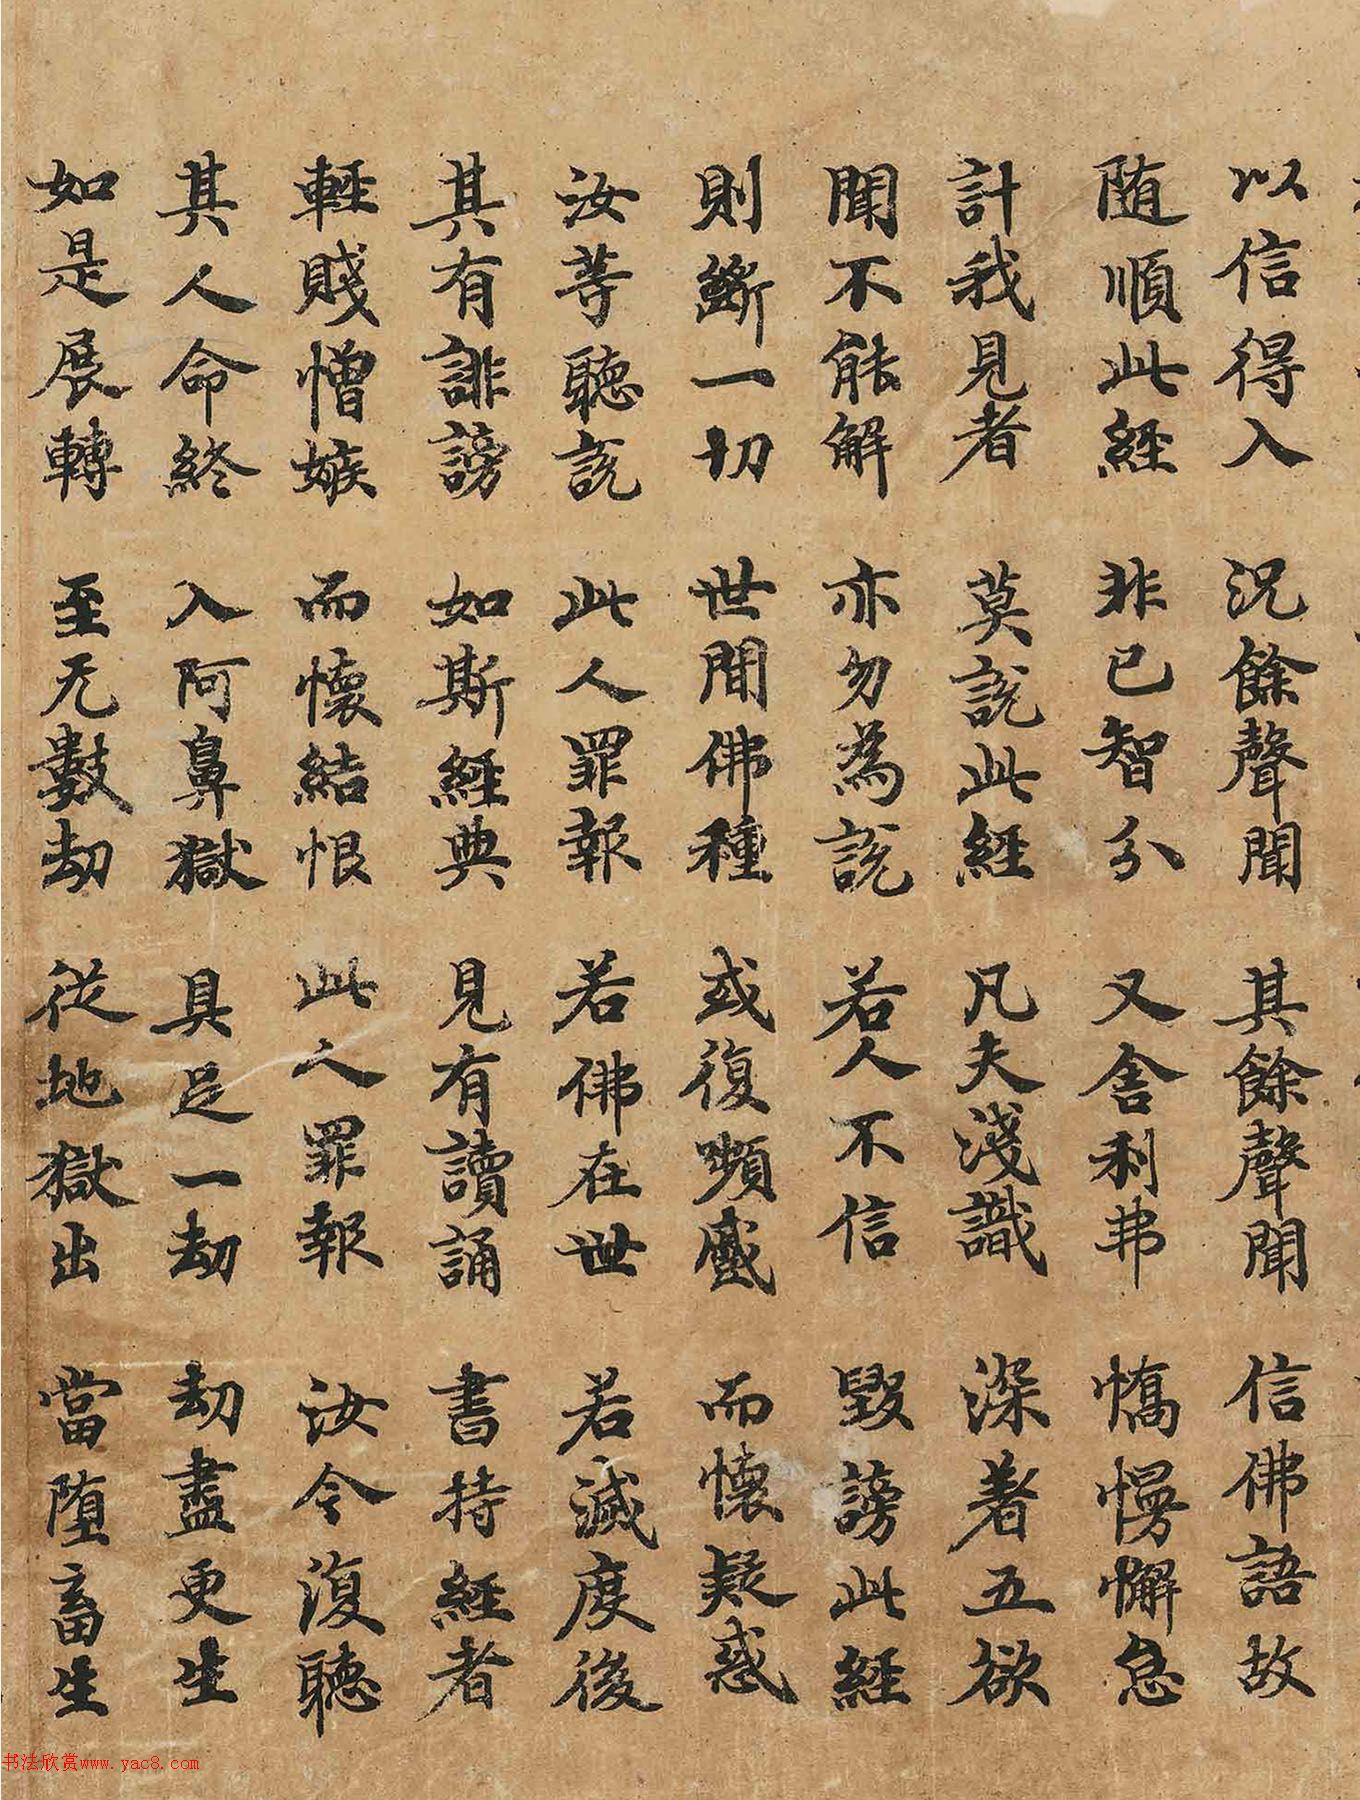 以信得入 況餘聲聞 其餘聲聞 信佛語故
随順此經 非已智分 又舍利弗 憍慢懈怠
計我見者 莫說此經 凡夫淺識 深著五欲
聞不能解 亦勿為說 若人不信 毀謗此經
則斷一切 世間佛種 或復嚬蹙 而懷疑惑
汝等聽說 此人罪報 若佛在世 若滅度後
其有誹謗 如斯經典 見有讀誦 書持經者
輕賤憎嫉 而懷結恨 此人罪報 汝今復聽
其人命終 入阿鼻獄 具足一劫 劫盡更生
如是展轉 至无數劫 從地獄出 當堕畜生
书法欣赏www.yac8.com